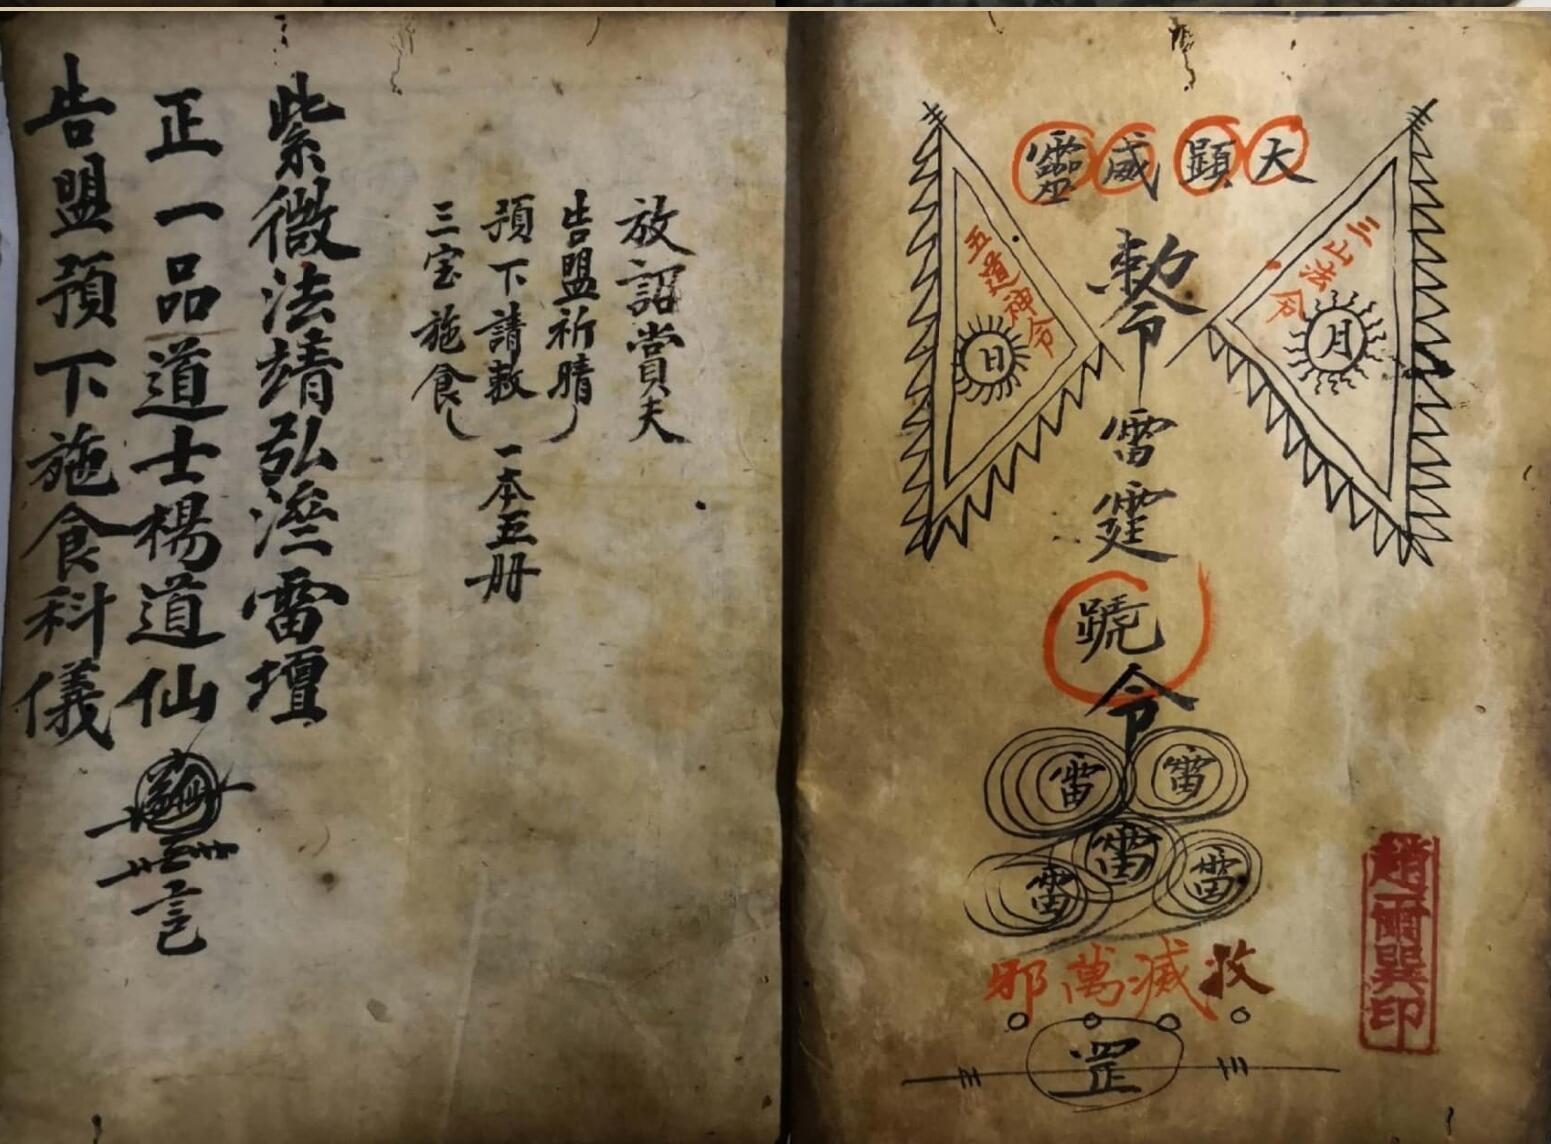 大顕威靈
三上法令
月
五道神令
日
勅令
雷霆
號
令
雷
雷
雷
雷
雷
救滅萬邪
罡
趙爾巽印
放詔賞夫
告盟祈晴
預下請赦
三宝施食
一本五册
紫微法靖弘濟雷壇
正一品道士楊道仙
告盟預下施食科儀